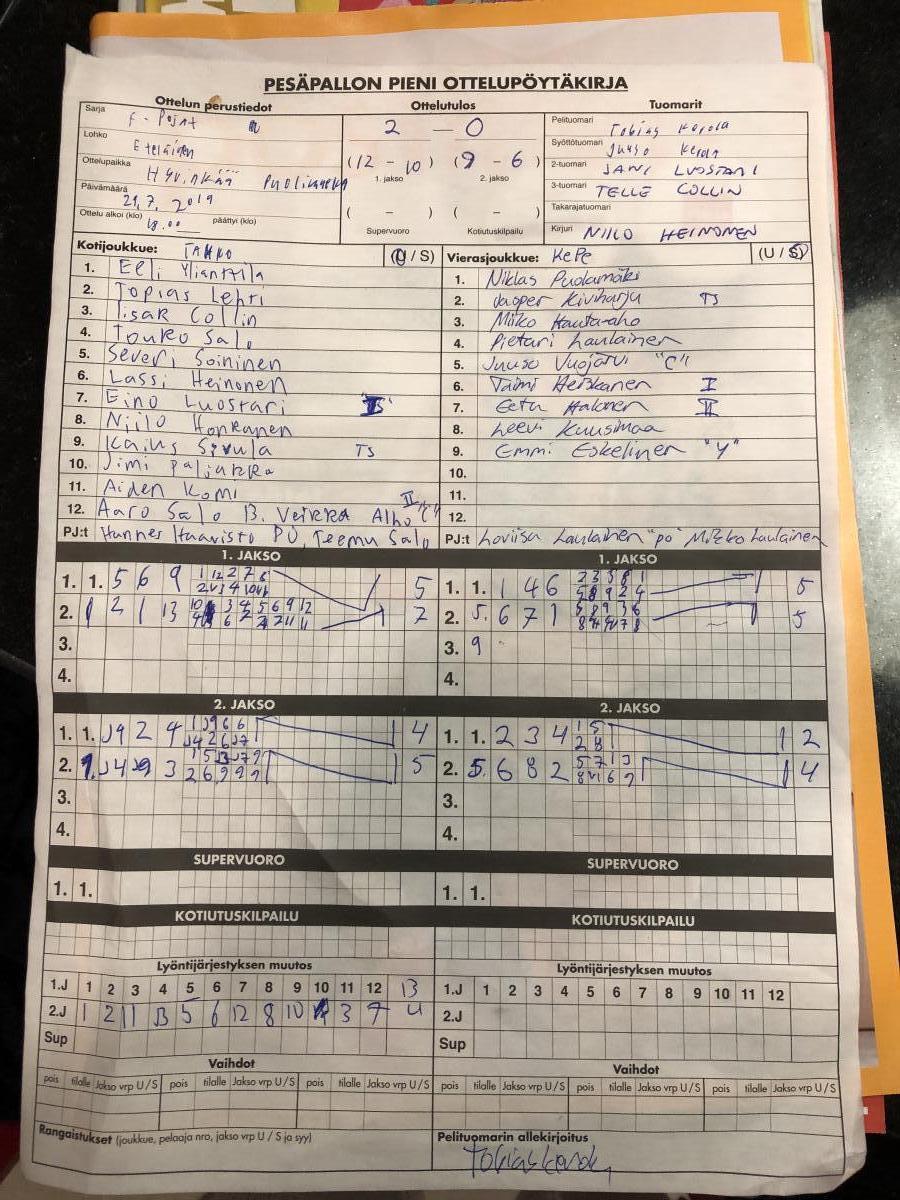 PESÄPALLON PIENI OTTELUPÖYTÄKIRJA
Ottelun perustiedot
Sarja F-Pojat
Lohko Eteläinen
Ottelupaikka Hyvinkää
Päivämäärä 21.7.2019
Ottelu alkoi (klo) 18.00 päättyi (klo)
Ottelutulos
2 — 0
(12 - 10) (9 - 6)
1. jakso 2. jakso
( - ) ( - )
Supervuoro Kotiutuskilpailu
Tuomarit
Pelituomari Tobias Kerola
Syöttötuomari Juuso Kerola
2-tuomari JANI LUOSTARI
3-tuomari TELLE COLLIN
Takarajatuomari
Kirjuri NIILO HEINONEN
Kotijoukkue: TAHKO (U / S)
1. Eeli Ylianttila
2. Topias Lehti
3. Iisak Collin
4. Touko Salo
5. Severi Soininen
6. Lassi Heinonen
7. Eino Luostari
8. Niilo Honkanen
9. Kaius Sivula TS
10. Jimi
11. Aiden Komi
12. Aaro Salo 13. Veikka Alho II "C"
PJ:t Hannes Haavisto PJ, Teemu Salo
Vierasjoukkue: KePe (U / S)
1. Niklas Puolamäki
2. Jasper Kiviharju TS
3. Miko Hauta-aho
4. Pietari Laulainen
5. Juuso Vuojärvi "C"
6. Taimi Heiskanen I
7. Eetu Halonen II
8. Leevi Kuusimaa
9. Emmi Eskelinen "Y"
10.
11.
12.
PJ:t Loviisa Laulainen "pj" Mikko Laulainen
1. JAKSO
1. 1. 5 6 9 5
2. 1 2 1 13 7
3.
4.
1. JAKSO
1. 1. 1 4 6 5
2. 5. 6 7 1 5
3. 9
4.
2. JAKSO
1. 1. 4
2. 5
3.
4.
2. JAKSO
1. 1. 2 3 4 2
2. 5. 6 8 2 4
3.
4.
SUPERVUORO
1. 1.
SUPERVUORO
1. 1.
KOTIUTUSKILPAILU
KOTIUTUSKILPAILU
Lyöntijärjestyksen muutos
1.J 1 2 3 4 5 6 7 8 9 10 11 12 13
2.J 1 2 11 13 5 6 12 8 10 3 7 4
Sup
Lyöntijärjestyksen muutos
1.J 1 2 3 4 5 6 7 8 9 10 11 12
2.J
Sup
Vaihdot
pois tilalle Jakso vrp U / S pois tilalle Jakso vrp U / S pois tilalle Jakso vrp U / S
Vaihdot
pois tilalle Jakso vrp U / S pois tilalle Jakso vrp U / S pois tilalle Jakso vrp U / S
Rangaistukset (joukkue, pelaaja nro, jakso vrp U / S ja syy)
Pelituomarin allekirjoitus